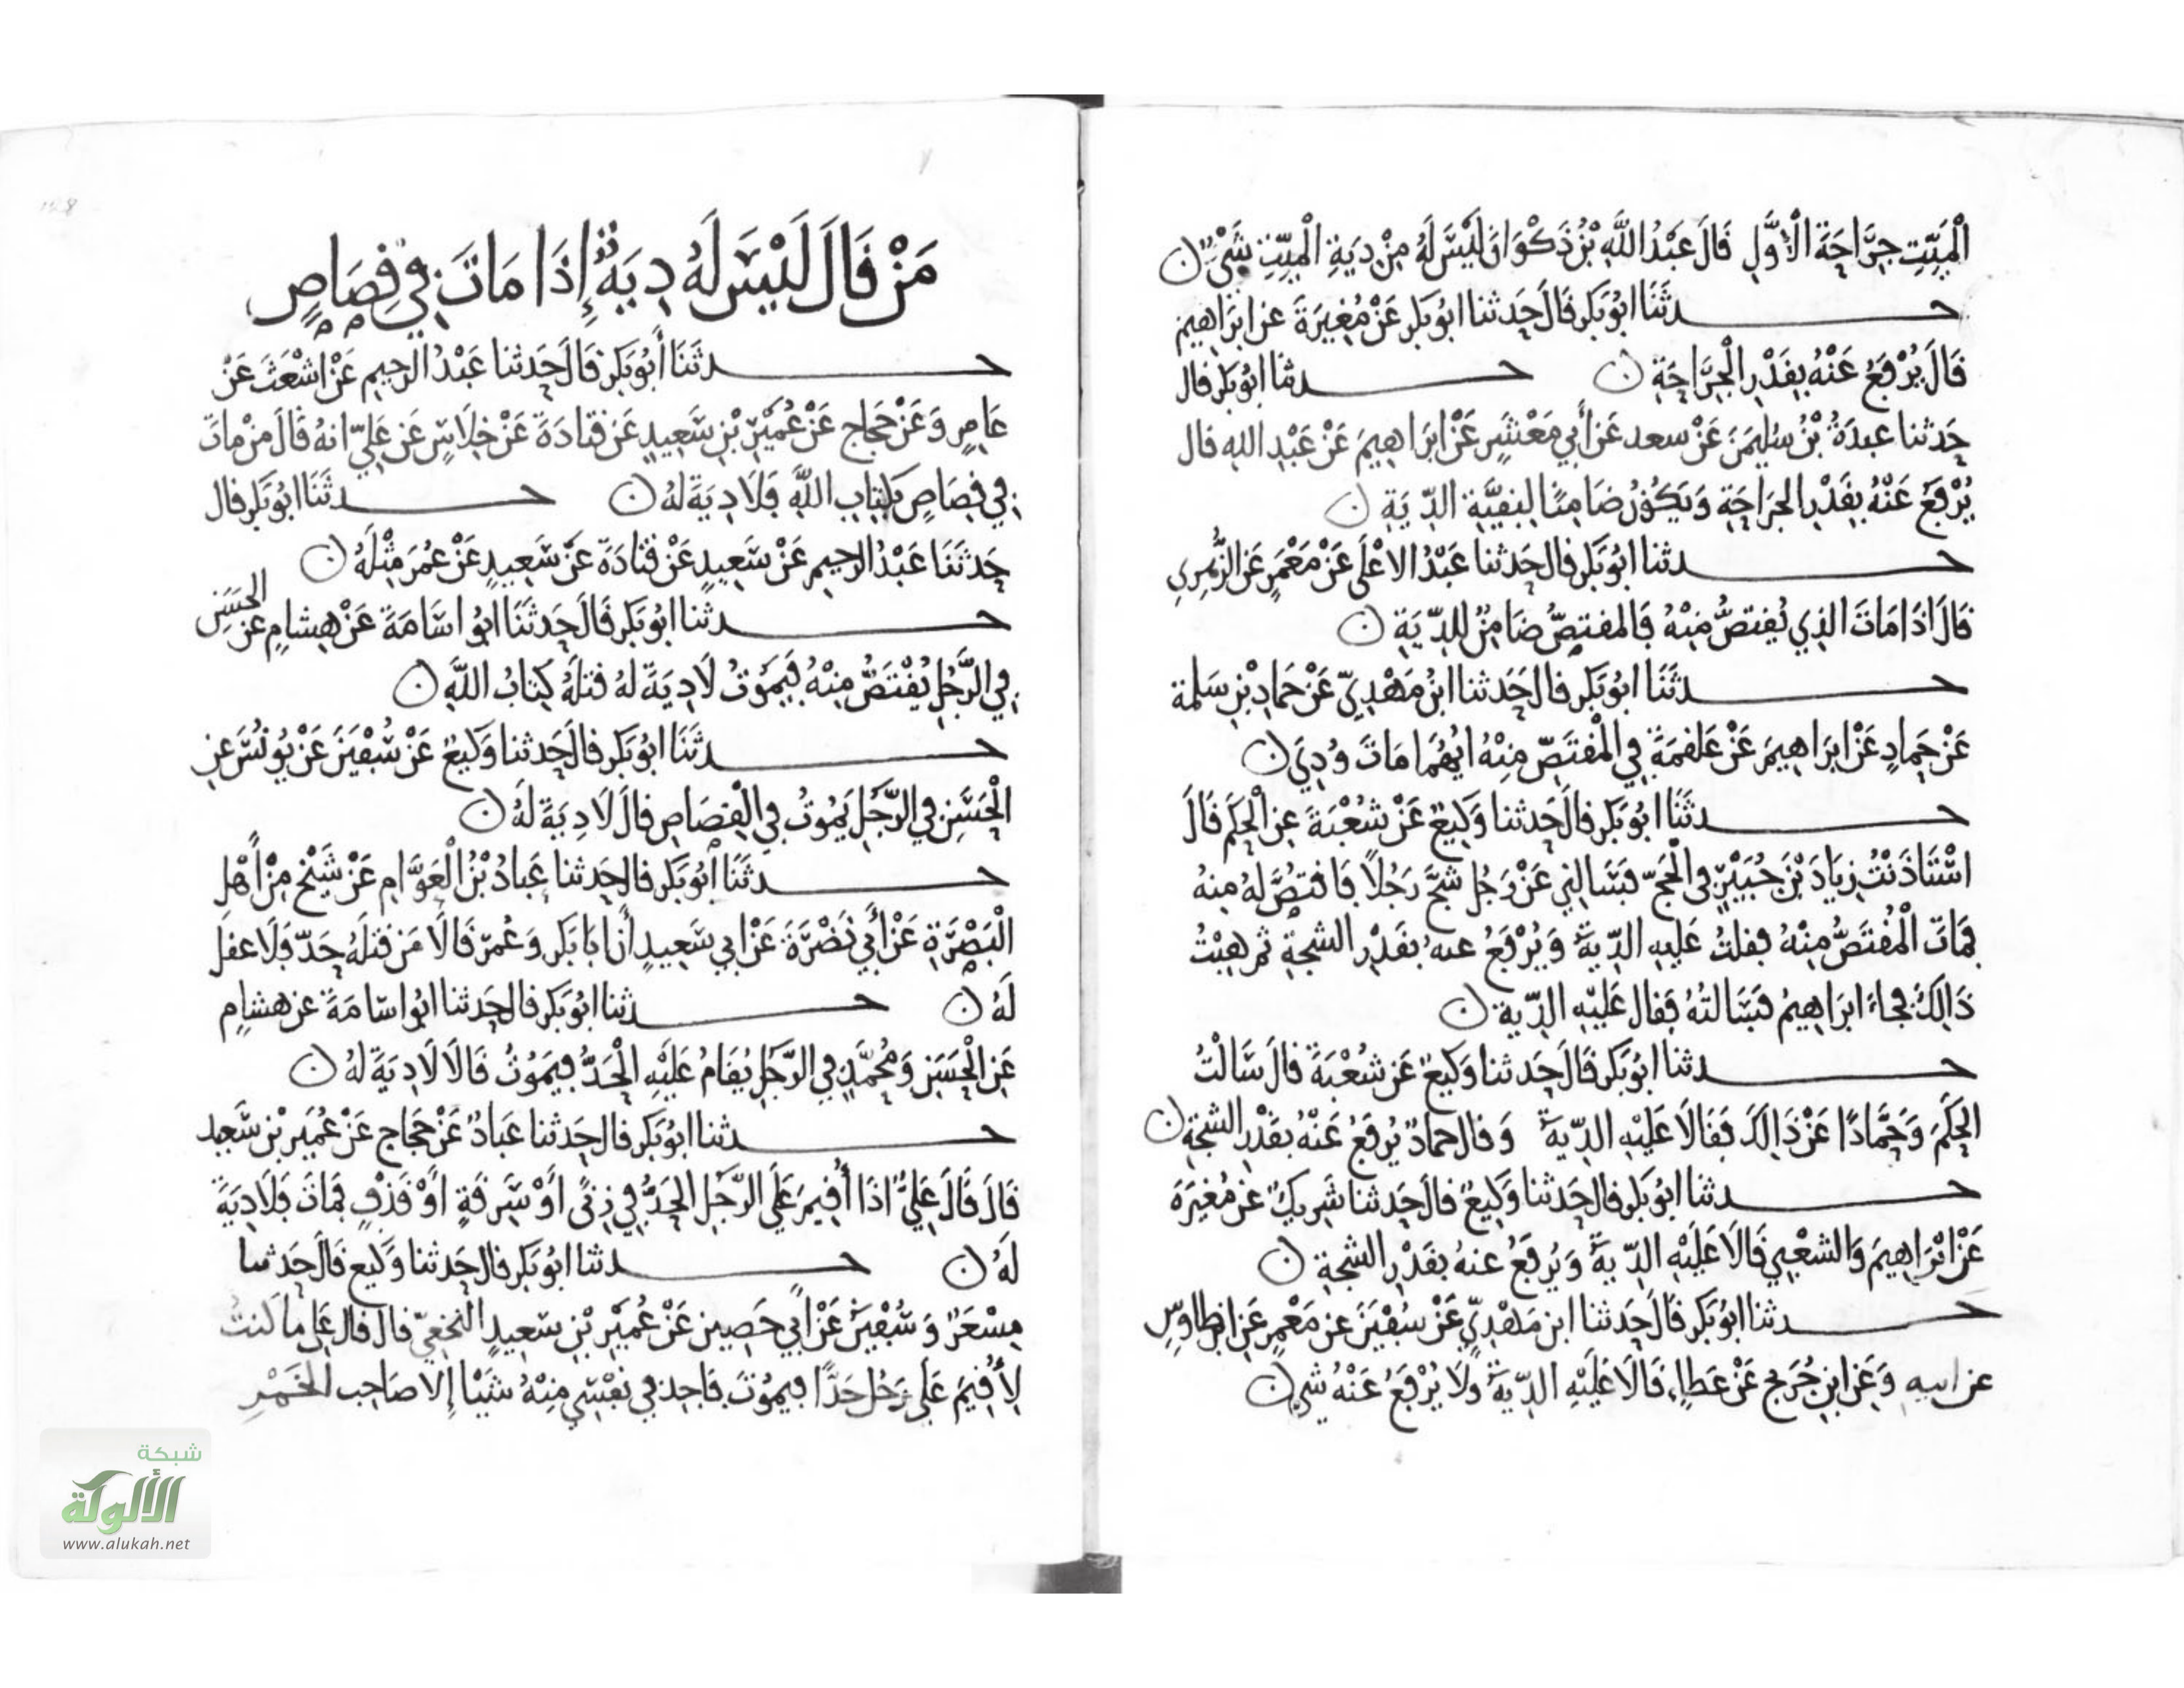 الْمَيِّتِ جِرَاحَةَ الْأَوَّلِ قَالَ عَبْدُ اللَّهِ بْنُ ذَكْوَانَ لَيْسَ لَهُ مِنْ دِيَةِ الْمَيِّتِ شَيْءٌ
حدثَنَا ابُو بَكر قَالَ حَدثنا ابُو بَكر عَنْ مُغِيرَةَ عن ابرَاهيم
قَالَ يُرْفَعُ عَنْهُ بِقَدْرِ الْجِرَاحَةِ حدثنا ابُو بَكر قال
حَدثنا عبدَةُ بْنُ سُليمَنَ عَنْ سعد عَن أَبِي مَعْشَرٍ عَنْ ابرَاهِيمَ عَنْ عَبْدِ اللهِ قال
يُرْفَعُ عَنْهُ بِقَدْرِ الجرَاحَةِ وَيَكُونُ ضَامِنًا لِبَقِيَّةِ الدِّيَةِ
حدثنا ابُو بَكر قال حَدثنا عَبْدُ الاعْلَى عَنْ مَعْمَرٍ عَن الزُّهرِي
قَالَ اذَا مَاتَ الذِي يُقتصُّ مِنْهُ فَالمقتصُّ ضَامِنٌ لِلدِّيَةِ
حدثَنَا ابُو بَكر قال حَدثنا ابْنُ مَهْدِيّ عَنْ حَمادِ بْنِ سَلمة
عَنْ حَمادٍ عَنْ ابرَاهِيمَ عَنْ عَلقمَةَ فِي الْمُقتَصِّ مِنْهُ ايُهُمَا مَاتَ وُدِيَ
حدثَنَا ابُو بَكر قال حَدثنا وَكِيعٌ عَنْ شُعْبَةَ عنِ الْحَكم قَالَ
اسْتَاذَنْتُ زِيَادَ بْنَ جُبَيْرٍ فِي الْحَجّ فسَالنِي عَنْ رَجُل شَجَّ رَجُلًا فَاقتصَّ لَهُ مِنهُ
فمَاتَ الْمُقْتَصُّ مِنْهُ فقلتُ عَليهِ الدِّيةُ وَيُرْفَعُ عنهُ بقَدْرِ الشجةِ ثم هِبْتُ
ذَالِكَ فجاءَ ابرَاهِيمُ فسَالتُهُ فقال عَلَيْهِ الدِّية
حدثنا ابُو بَكر قَالَ حَدثنا وَكيعٌ عَن شُعْبَةَ قالَ سَالْتُ
الحَكَمَ وَحَمَّادًا عَنْ ذَالِكَ فقَالَا عَلَيْهِ الدِّيةُ وَقال حمادٌ يُرفعُ عَنْهُ بقَدْرِ الشجةِ
حدثنا ابُو بَكر قال حَدثنا وَكِيعٌ قالَ حَدثنا شَرِيكٌ عن مُغيرَةَ
عَنْ ابْرَاهِيمَ وَالشعْبِي قَالَا عَلَيْهِ الدِّيةُ وَيُرفعُ عنهُ بقَدْرِ الشجةِ
حدثنا ابُو بَكر قَالَ حَدثنا ابن مَهْدِيّ عَنْ سُفيَنَ عن مَعْمرٍ عَن ابن طاوسٍ
عن ابيهِ وَعَن ابنِ جُرَيج عَنْ عَطاءٍ قَالَا عَلَيْهِ الدِّيةُ ولَا يُرْفعُ عَنْهُ شي
مَنْ قَالَ لَيْسَ لَهُ دِيَةٌ إِذَا مَاتَ فِي قِصَاصٍ
حدثَنَا أَبُو بَكر قَالَ حَدثنا عَبْدُ الرحِيم عَنْ اشْعَثَ عَنْ
عَامِرٍ وَعَنْ حَجَاج عَنْ عُمَيْرِ بْنِ سَعِيدٍ عَن قتادَةَ عَنْ خِلَاسٍ عَن عَلِيّ انهُ قَالَ مَنْ مَاتَ
فِي قِصَاصٍ بِكتابِ اللَّهِ فَلَا دِيَةَ لهُ حدثَنَا ابُو بَكر قال
حَدثَنَا عَبْدُ الرحِيم عَنْ سَعِيدٍ عَنْ قتادَةَ عَنْ سَعِيدٍ عَنْ عُمَرَ مِثْلَهُ
حدثنا ابُو بَكر قَالَ حَدثَنَا ابُو اسَامَةَ عَنْ هِشامٍ عن الحَسَنِ
فِي الرَّجُلِ يُقْتَصُّ مِنْهُ فَيَمُوتُ لَا دِيَةَ لهُ قتلَهُ كِتابُ اللَّهِ
حدثَنَا ابُو بَكر قال حَدثنا وَكِيعٌ عَنْ سُفْيَنَ عَنْ يُونُسَ عنِ
الْحَسَنِ فِي الرَّجُلِ يَمُوتُ فِي الْقِصَاصِ قالَ لَا دِيَةَ لَهُ
حدثَنَا ابُو بَكر قال حَدثنا عَبادُ بْنُ الْعَوَّامِ عَنْ شَيْخ مِنْ أَهْل
الْبَصْرَةِ عَنْ أَبِي نَضْرَةَ عَنْ ابِي سَعِيدٍ أَن ابَا بَكر وَعُمَرَ قَالَا مَنْ قتَلَهُ حَدّ فَلَا عقلَ
لَهُ حدثنا ابُو بَكر قال حَدثنا ابُو اسَامَةَ عن هشام
عَنِ الْحَسَنِ وَمُحَمَّدٍ فِي الرَّجُلِ يُقامُ عَلَيْهِ الْحَدُّ فيَمُوتُ قَالَا لَا دِيَةَ لهُ
حدثنا ابُو بَكر قال حَدثنا عَبادٌ عَنْ حَجاج عَنْ عُمَيرِ بْنِ سَعِيد
قَالَ قَالَ عَلِيٌّ اذَا أُقِيمَ عَلَى الرَّجُلِ الحَدُّ فِي زِنًى أَوْ سَرقَةٍ أَوْ قَذْفٍ فمَاتَ فَلَا دِيَةَ
لَهُ حدثنا ابُو بَكر قال حَدثنا وَكيع قَالَ حَدثنا
مِسْعَرٌ وَسُفْيَنُ عَنْ أَبِي حَصِينٍ عَنْ عُمَيْرِ بْنِ سَعِيدٍ النَخَعِيّ قال قال عَلِي مَا كُنتُ
لِأُقِيمَ عَلَى رَجُل حَدًّا فيمُوتَ فَاجِدَ فِي نفْسِي مِنْهُ شَيْئا إِلا صَاحِب الْخَمْرِ
شبكة
الألوكة
www.alukah.net